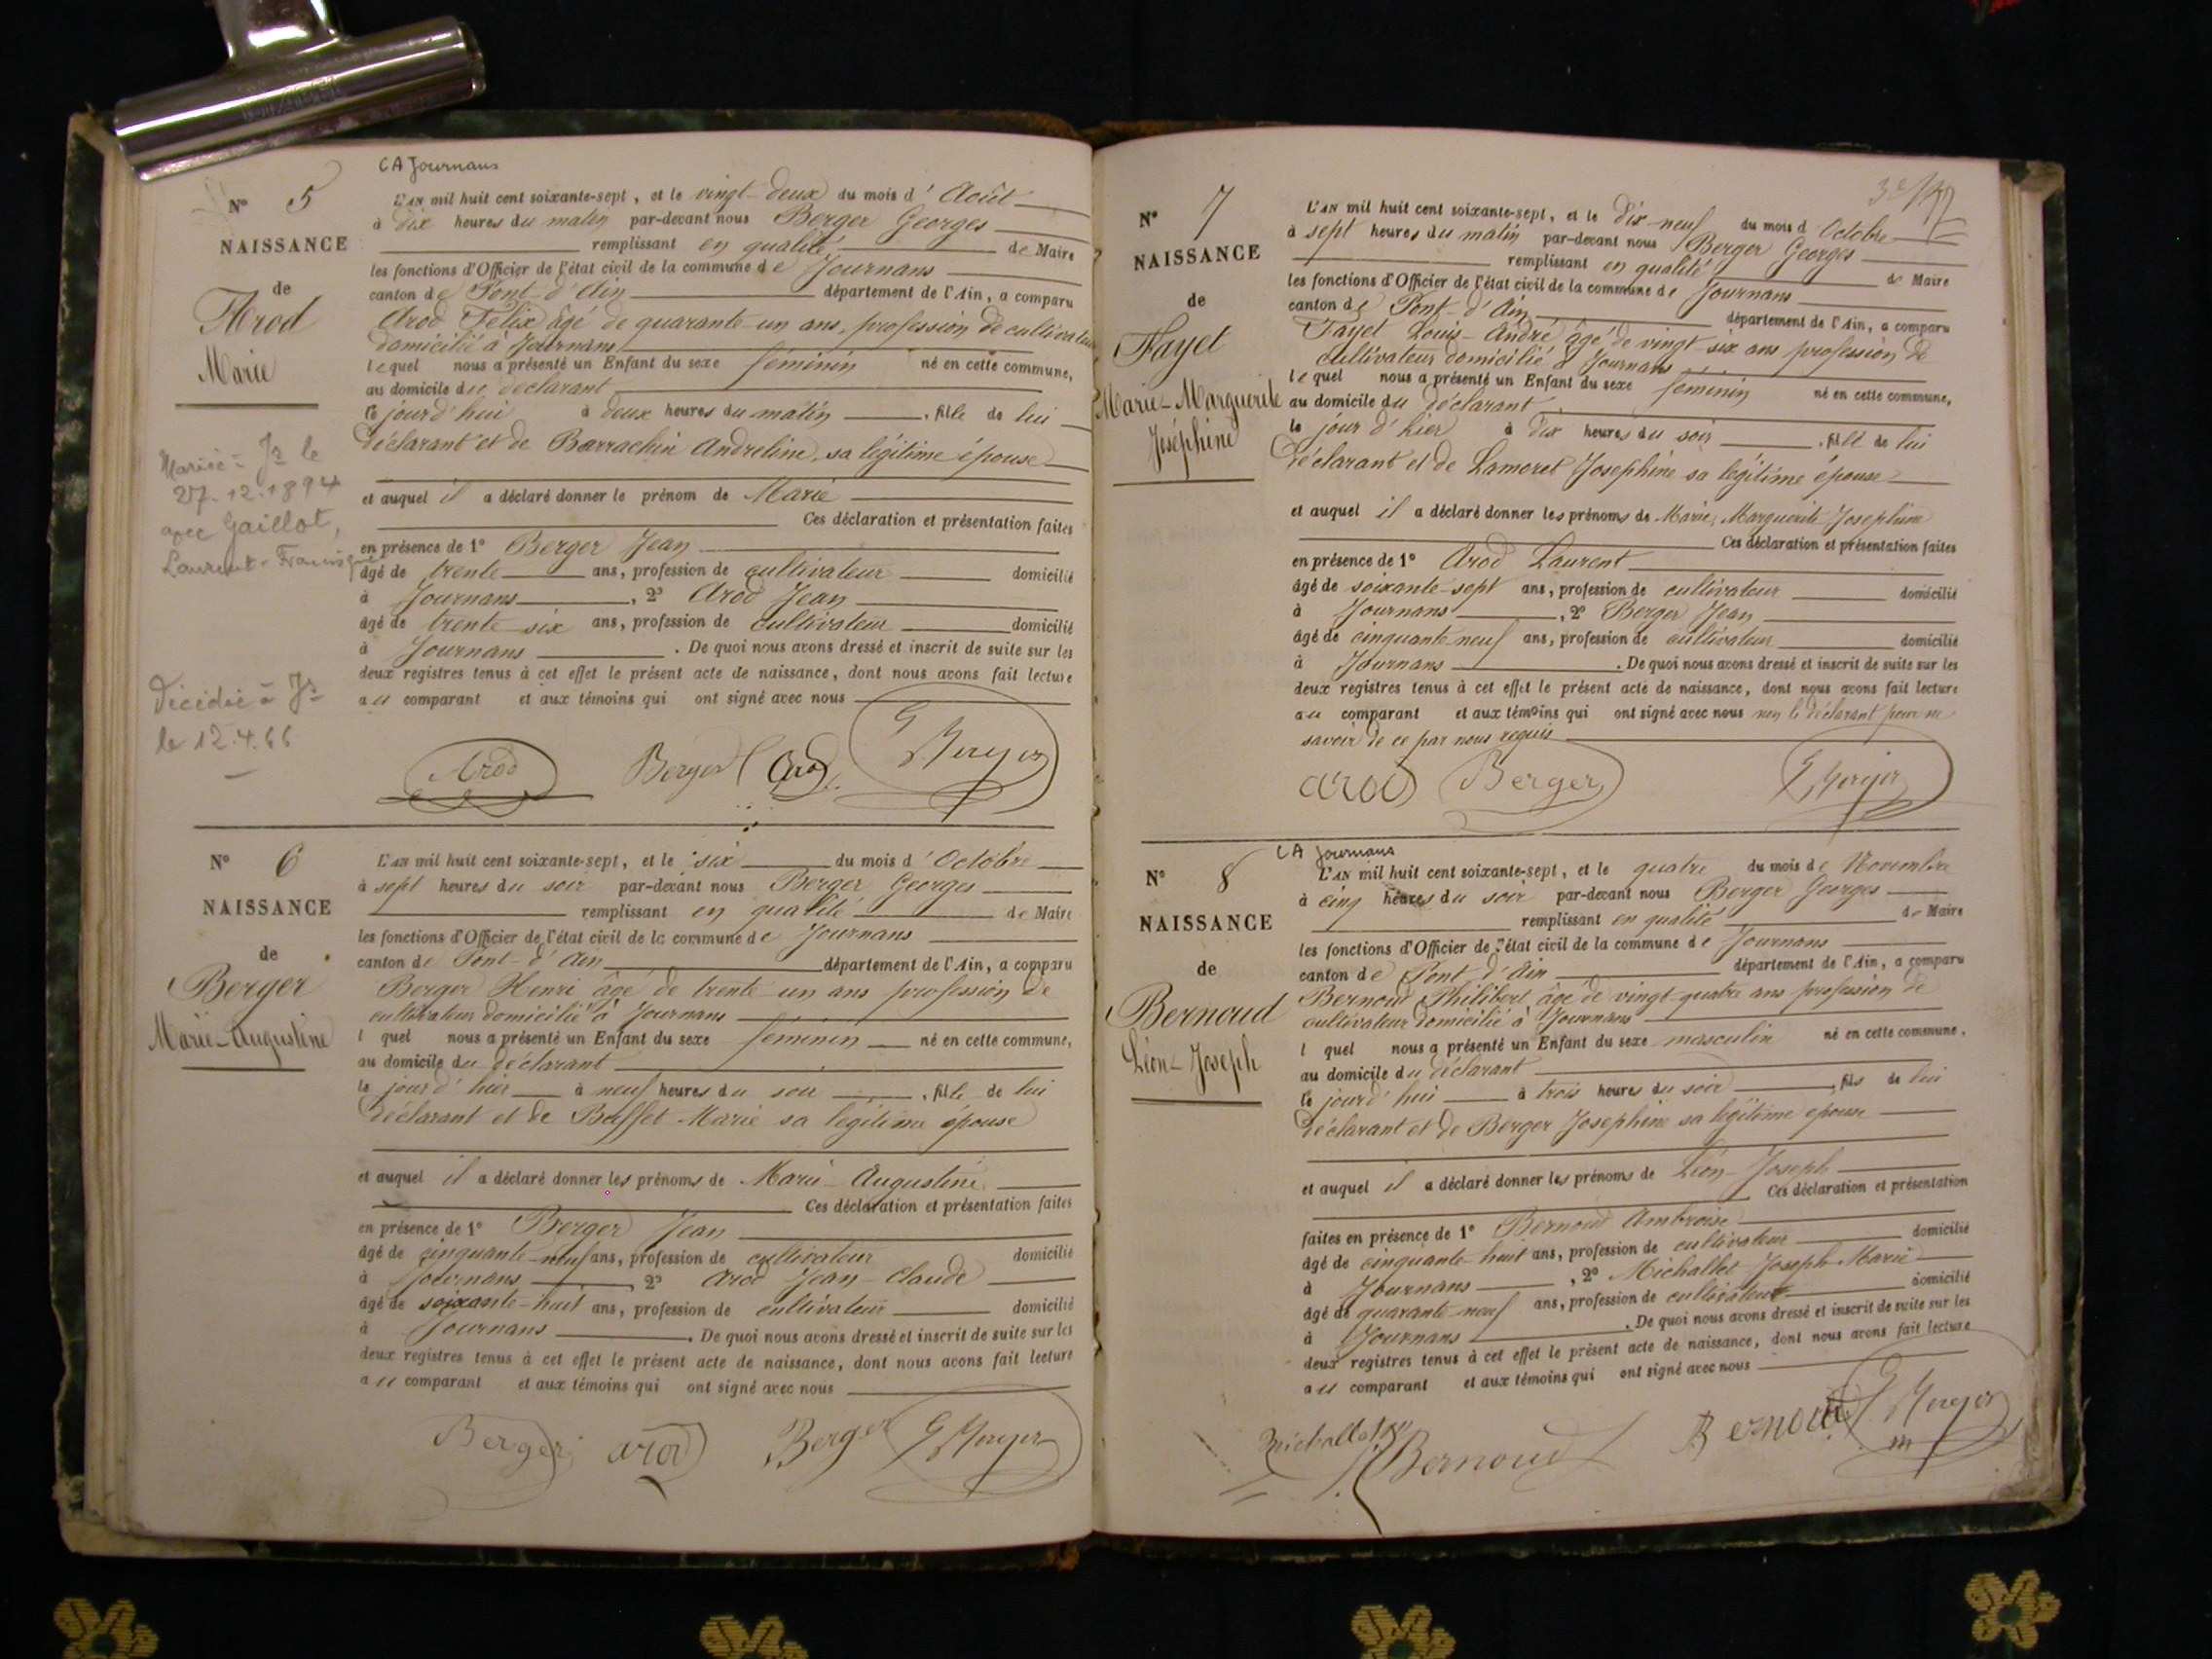 CA Journans
N° 5
NAISSANCE
de
Arod
Marie
Mariée à Js le
27.12.1894
avec Gaillot,
Laurent-Francisque
Décédée à Js
le 12.4.66
L'AN mil huit cent soixante-sept, et le vingt-deux du mois d'Août
à dix heures du matin par-devant nous Berger Georges
remplissant en qualité de Maire
les fonctions d'Officier de l'état civil de la commune de Journans
canton de Pont-d'Ain département de l'Ain, a comparu
Arod Félix âgé de quarante-un ans, profession de cultivateur
domicilié à Journans
lequel nous a présenté un Enfant du sexe féminin né en cette commune,
au domicile du déclarant
le jourd'hui à deux heures du matin, fille de lui
déclarant et de Barrachin Andreline, sa légitime épouse
et auquel il a déclaré donner le prénom de Marie
Ces déclaration et présentation faites
en présence de 1° Berger Jean
âgé de trente ans, profession de cultivateur domicilié
à Journans, 2° Arod Jean
âgé de trente six ans, profession de cultivateur domicilié
à Journans. De quoi nous avons dressé et inscrit de suite sur les
deux registres tenus à cet effet le présent acte de naissance, dont nous avons fait lecture
au comparant et aux témoins qui ont signé avec nous
Arod Berger Arod G Berger
N° 6
NAISSANCE
de
Berger
Marie-Augustine
L'AN mil huit cent soixante-sept, et le six du mois d'Octobre
à sept heures du soir par-devant nous Berger Georges
remplissant en qualité de Maire
les fonctions d'Officier de l'état civil de la commune de Journans
canton de Pont-d'Ain département de l'Ain, a comparu
Berger Henri âgé de trente-un ans profession de
cultivateur domicilié à Journans
l quel nous a présenté un Enfant du sexe féminin né en cette commune,
au domicile du déclarant
le jour d'hier à neuf heures du soir, fille de lui
déclarant et de Buffet Marie sa légitime épouse
et auquel il a déclaré donner les prénoms de Marie-Augustine
Ces déclaration et présentation faites
en présence de 1° Berger Jean
âgé de cinquante-neuf ans, profession de cultivateur domicilié
à Journans, 2° Arod Jean-Claude
âgé de soixante-huit ans, profession de cultivateur domicilié
à Journans. De quoi nous avons dressé et inscrit de suite sur les
deux registres tenus à cet effet le présent acte de naissance, dont nous avons fait lecture
au comparant et aux témoins qui ont signé avec nous
Berger arod Berger G Berger
N° 7
NAISSANCE
de
Fayet
Marie-Marguerite
Joséphine
L'AN mil huit cent soixante-sept, et le dix-neuf du mois d Octobre
à sept heures du matin par-devant nous Berger Georges
remplissant en qualité de Maire
les fonctions d'Officier de l'état civil de la commune de Journans
canton de Pont-d'Ain département de l'Ain, a comparu
Fayet Louis-André âgé de vingt-six ans profession de
cultivateur domicilié à Journans
lequel nous a présenté un Enfant du sexe féminin né en cette commune,
au domicile du déclarant
le jour d'hier à dix heures du soir, fille de lui
déclarant et de Lamoret Josephine sa légitime épouse
et auquel il a déclaré donner les prénoms de Marie, Marguerite Josephine
Ces déclaration et présentation faites
en présence de 1° Arod Laurent
âgé de soixante-sept ans, profession de cultivateur domicilié
à Journans, 2° Berger Jean
âgé de cinquante-neuf ans, profession de cultivateur domicilié
à Journans. De quoi nous avons dressé et inscrit de suite sur les
deux registres tenus à cet effet le présent acte de naissance, dont nous avons fait lecture
au comparant et aux témoins qui ont signé avec nous non le déclarant pour ne
savoir de ce par nous requis
arod Berger G Berger
CA Journans
N° 8
NAISSANCE
de
Bernoud
Léon-Joseph
L'AN mil huit cent soixante-sept, et le quatre du mois de Novembre
à cinq heures du soir par-devant nous Berger Georges
remplissant en qualité de Maire
les fonctions d'Officier de l'état civil de la commune de Journans
canton de Pont-d'Ain département de l'Ain, a comparu
Bernoud Philibert âgé de vingt-quatre ans profession de
cultivateur domicilié à Journans
l quel nous a présenté un Enfant du sexe masculin né en cette commune,
au domicile du déclarant
le jourd'hui à trois heures du soir, fils de lui
déclarant et de Berger Josephine sa légitime épouse
et auquel il a déclaré donner les prénoms de Léon-Joseph
Ces déclaration et présentation
faites en présence de 1° Bernoud Ambroise
âgé de cinquante huit ans, profession de cultivateur domicilié
à Journans, 2° Michallet Joseph-Marie
âgé de quarante-neuf ans, profession de cultivateur domicilié
à Journans. De quoi nous avons dressé et inscrit de suite sur les
deux registres tenus à cet effet le présent acte de naissance, dont nous avons fait lecture
au comparant et aux témoins qui ont signé avec nous
Michallet Bernoud Bernoud G Berger